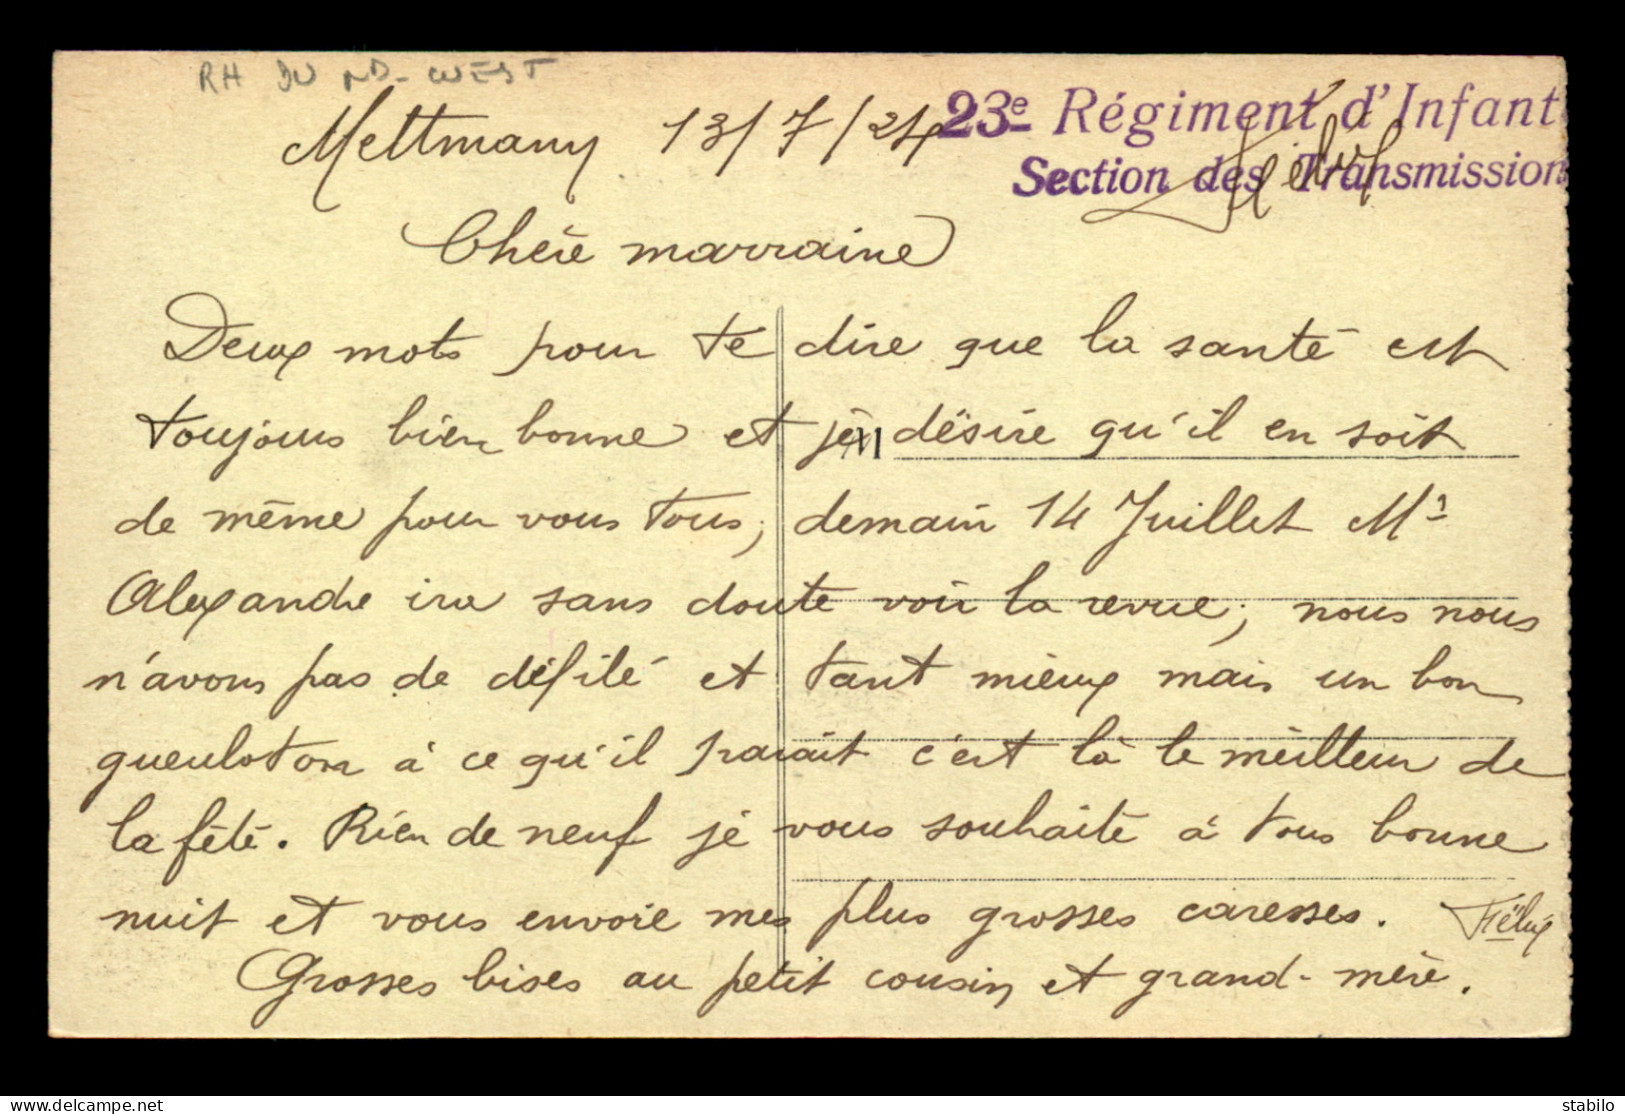 RH DU ND-OUEST
Mettmany 13/7/24
23e Régiment d'Infant
Section des Transmission
Félix
Chère marraine
Deux mots pour te dire que la santé est
toujours bien bonne et je désire qu'il en soit
de même pour vous tous, demain 14 Juillet Mr
Alexandre ira sans doute voir la revue, nous nous
n'avons pas de défilé et tant mieux mais un bon
gueuleton à ce qu'il parait c'est là le meilleur de
la fête. Rien de neuf je vous souhaite à tous bonne
nuit et vous envoie mes plus grosses caresses. Félix
Grosses bises au petit cousin et grand-mère.
delcampe.net
stabilo